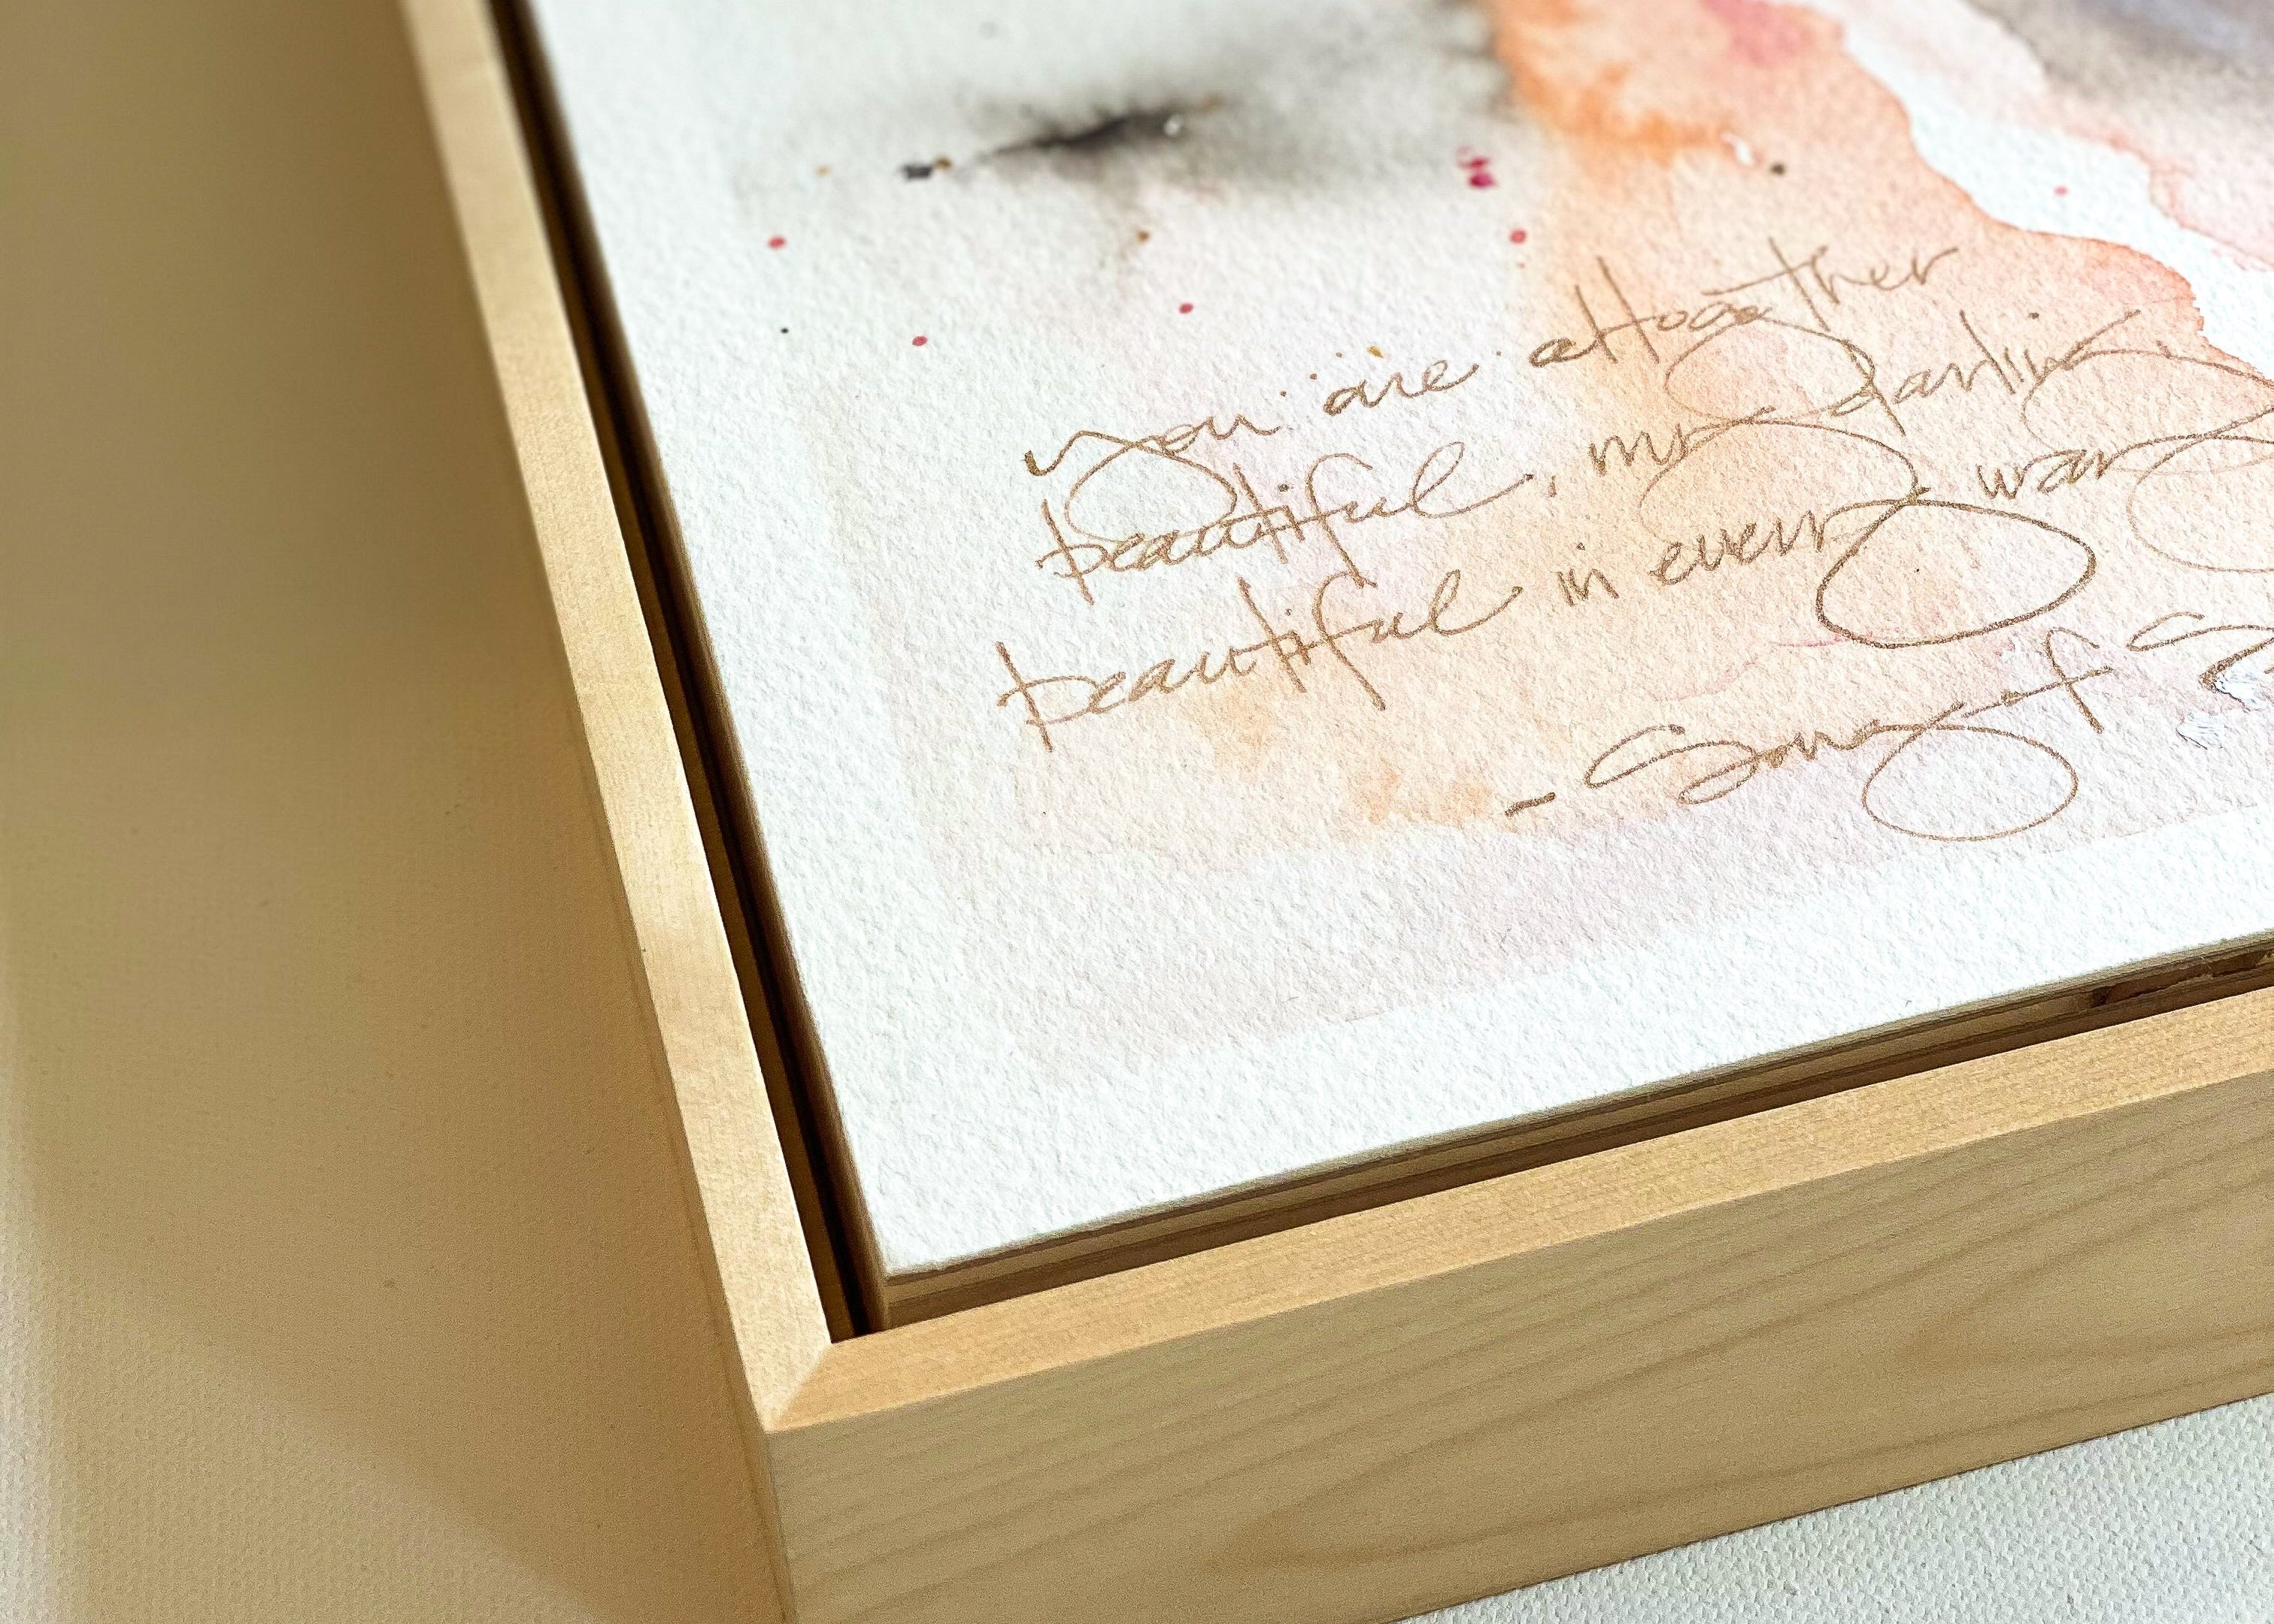 You are altogether
beautiful, my darling,
beautiful in every way
- Song of S